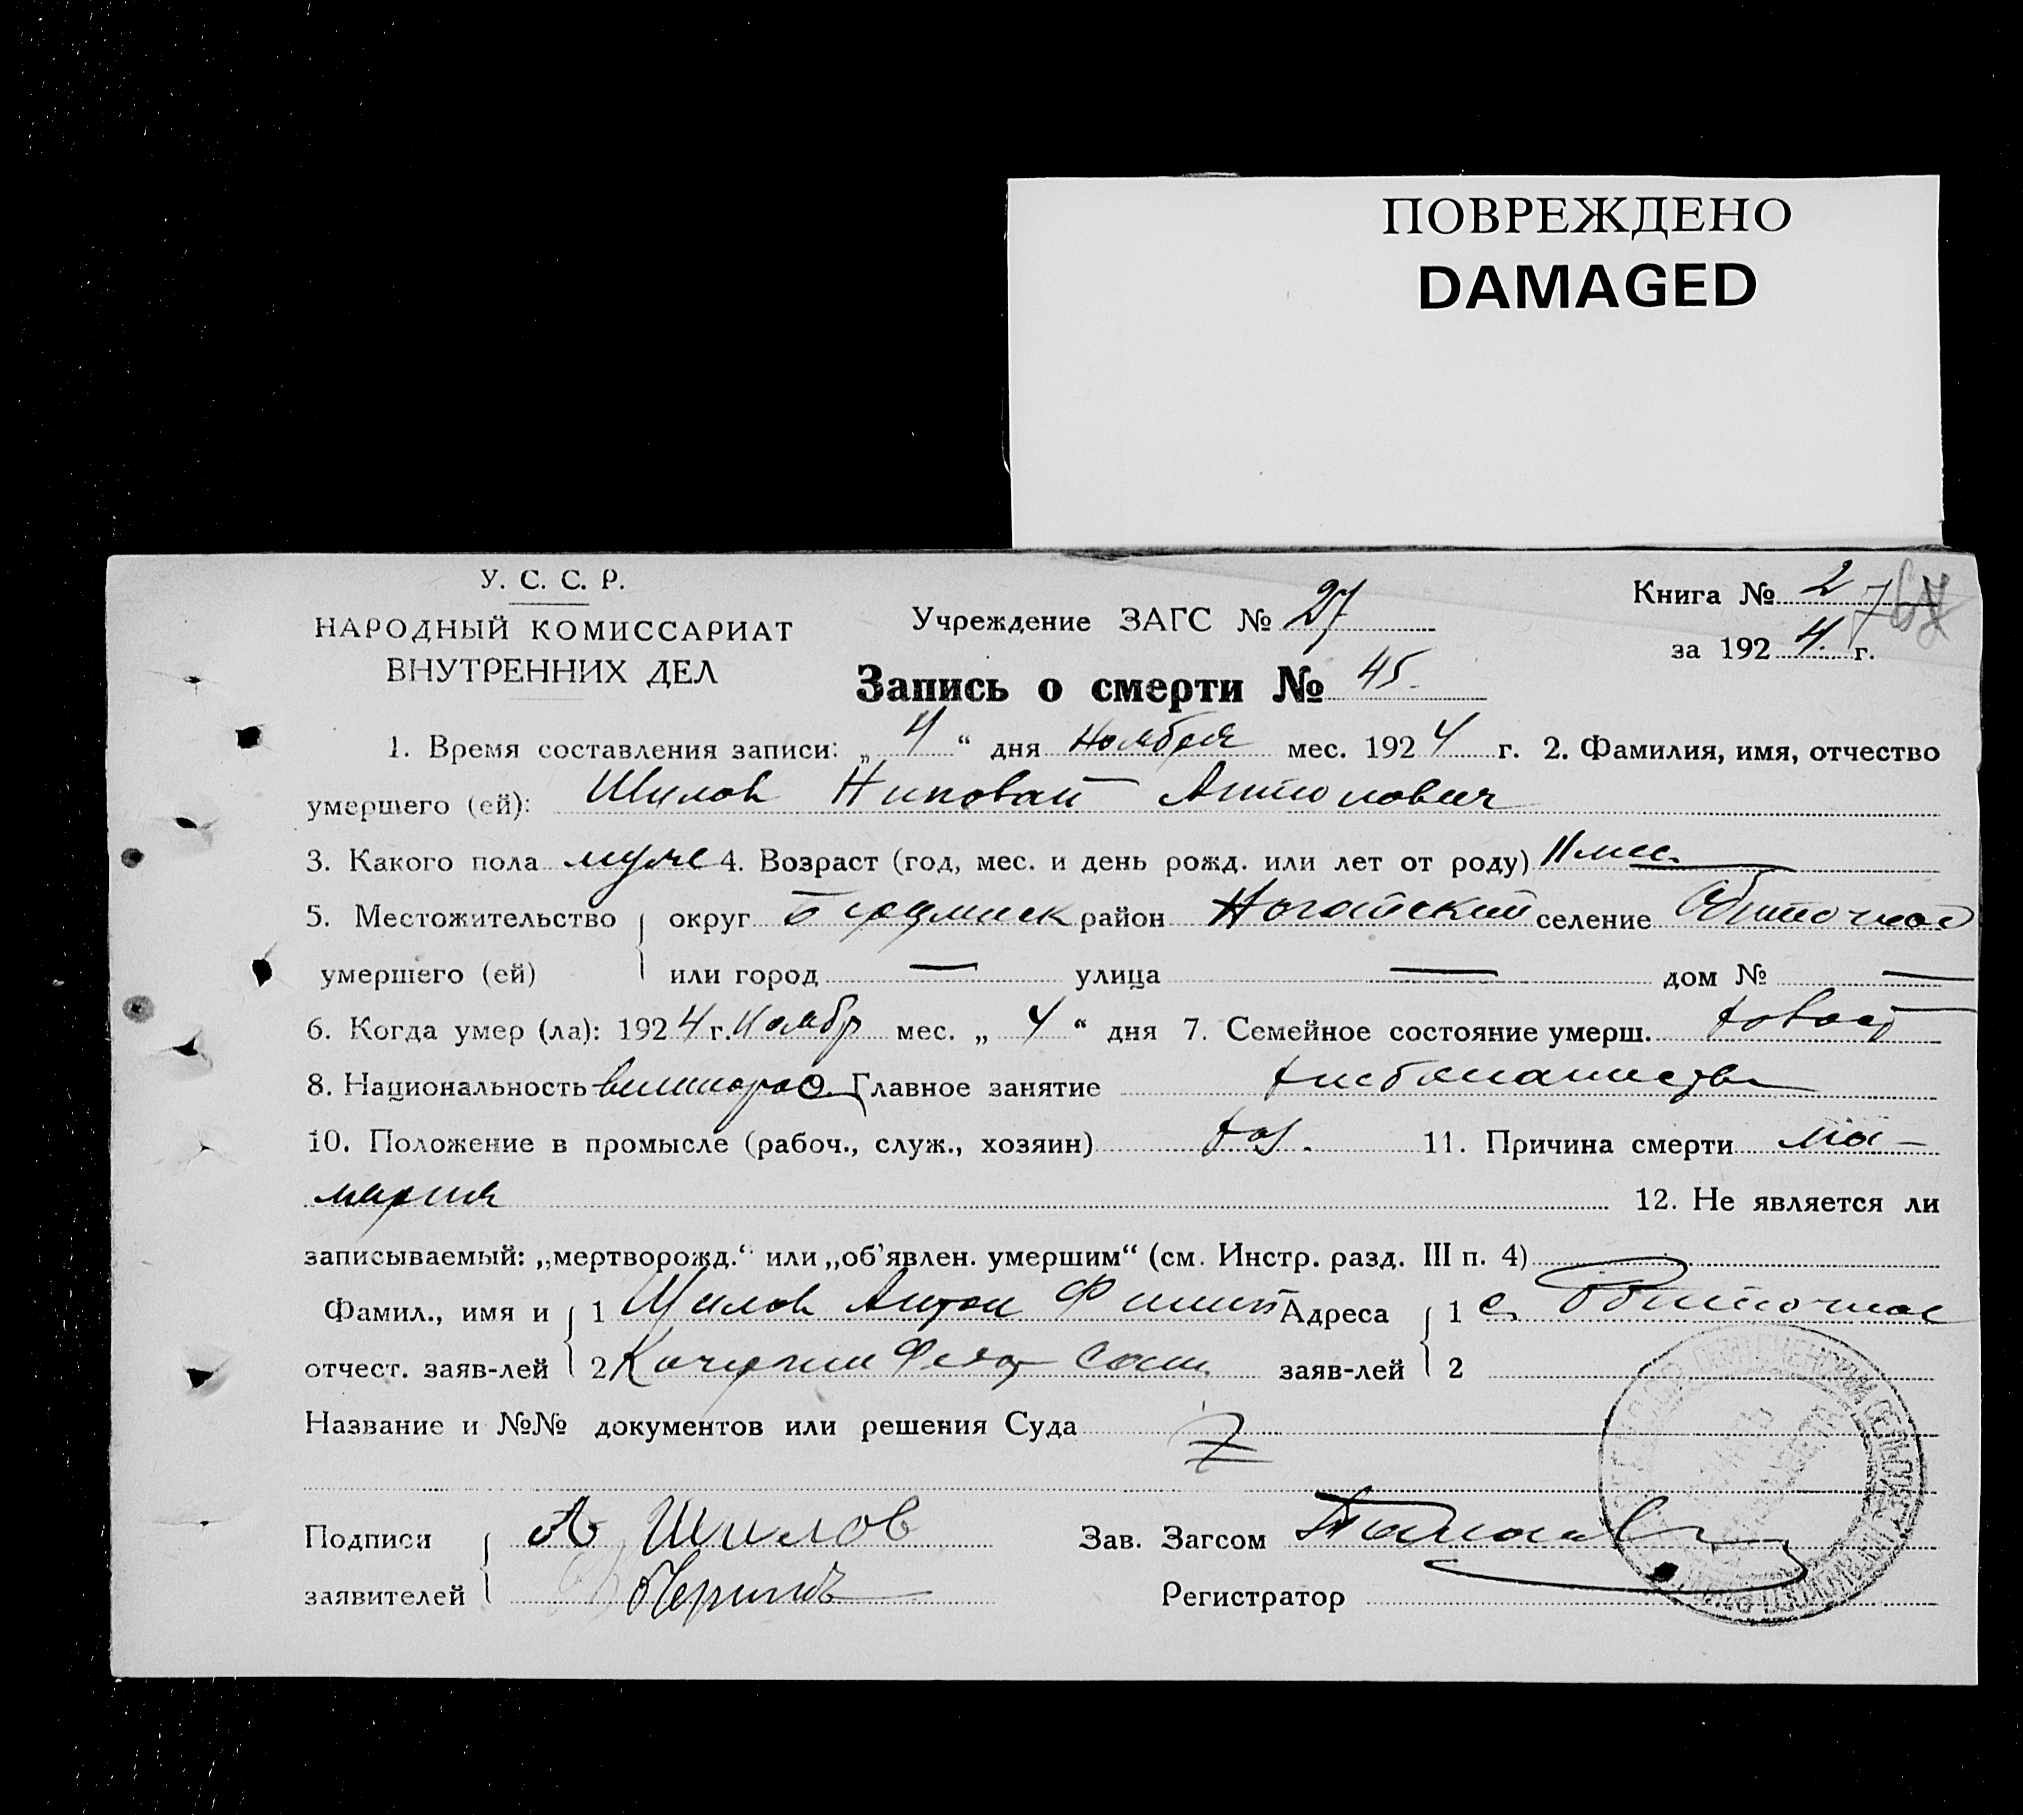 ПОВРЕЖДЕНО
DAMAGED
У. С. С. Р.
НАРОДНЫЙ КОМИССАРИАТ
ВНУТРЕННИХ ДЕЛ
Учреждение ЗАГС № 27
Книга № 2
за 1924 г.
Запись о смерти № 45.
1. Время составления записи: „ 4 “ дня ноября мес. 1924 г. 2. Фамилия, имя, отчество
умершего (ей): Шилов Антонович
3. Какого пола муже 4. Возраст (год, мес. и день рожд. или лет от роду) 11 мес.
5. Местожительство округ район Ногайский селение Обиточное
умершего (ей) или город — улица — дом № —
6. Когда умер (ла): 1924 г. ноябр мес. „ 4 “ дня 7. Семейное состояние умерш. холост
8. Национальность великорос 9. Главное занятие хлебопашество
10. Положение в промысле (рабоч., служ., хозяин) хоз. 11. Причина смерти ма-
лярия 12. Не является ли
записываемый: „мертворожд.“ или „об'явлен. умершим“ (см. Инстр. разд. III п. 4)
Фамил., имя и 1 Шилов Антон Филип Адреса 1 с. Обиточное
отчест. заяв-лей 2 заяв-лей 2
Название и №№ документов или решения Суда
Подписи А Шилов Зав. Загсом
заявителей Регистратор